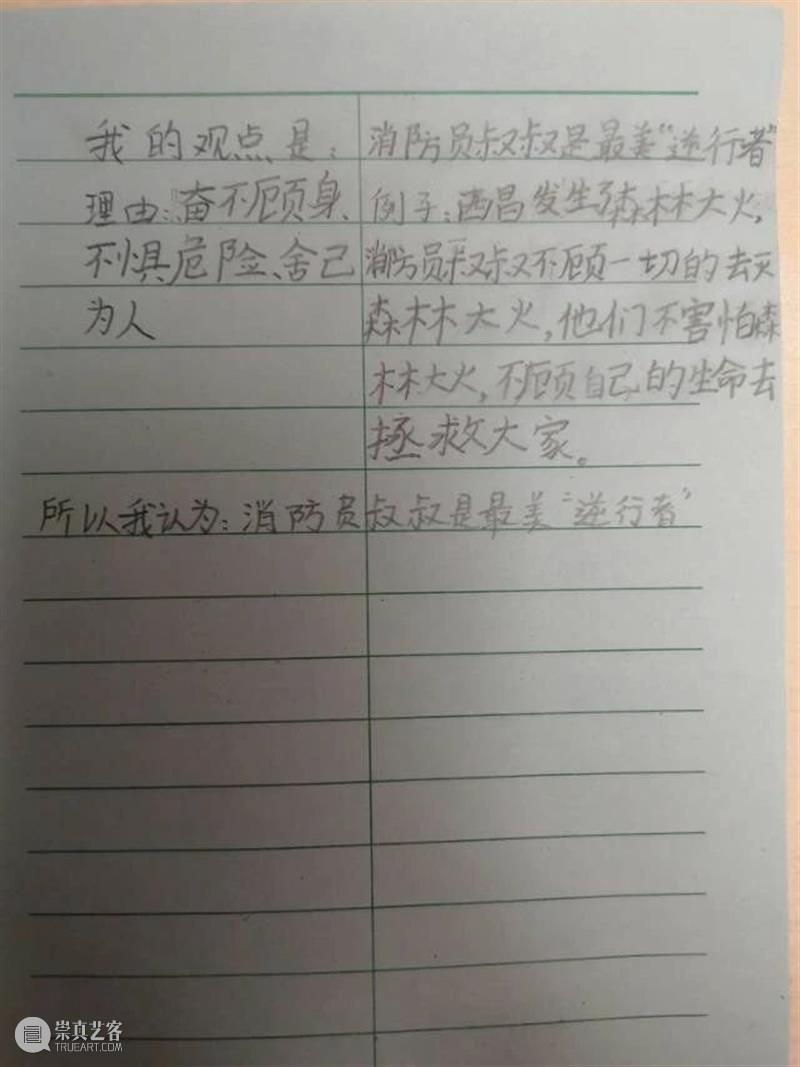 我的观点是：消防员叔叔是最美“逆行者”
理由：奋不顾身、
不惧危险、舍己
为人
例子：西昌发生了森林大火，
消防员叔叔不顾一切的去灭
森林大火，他们不害怕森
林大火，不顾自己的生命去
拯救大家。
所以我认为：消防员叔叔是最美“逆行者”
崇真艺客
TRUEART.COM